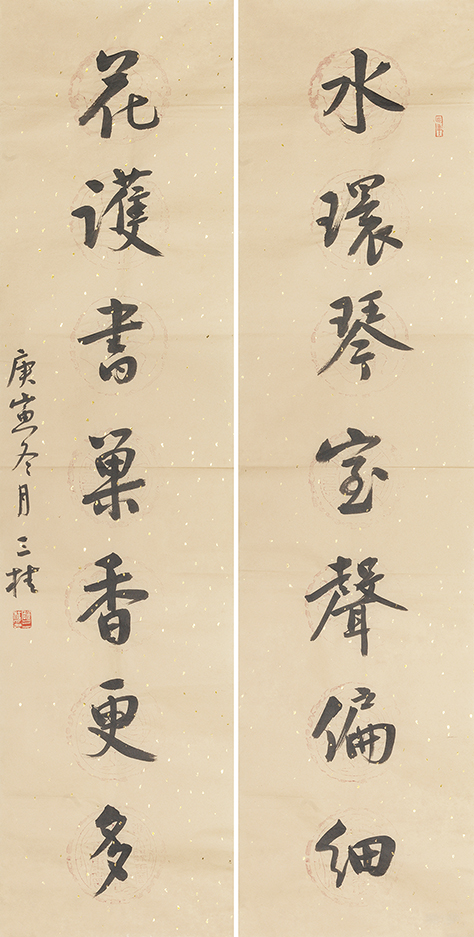 水環琴室聲偏細
花護書巢香更多
庚寅冬月 三桂